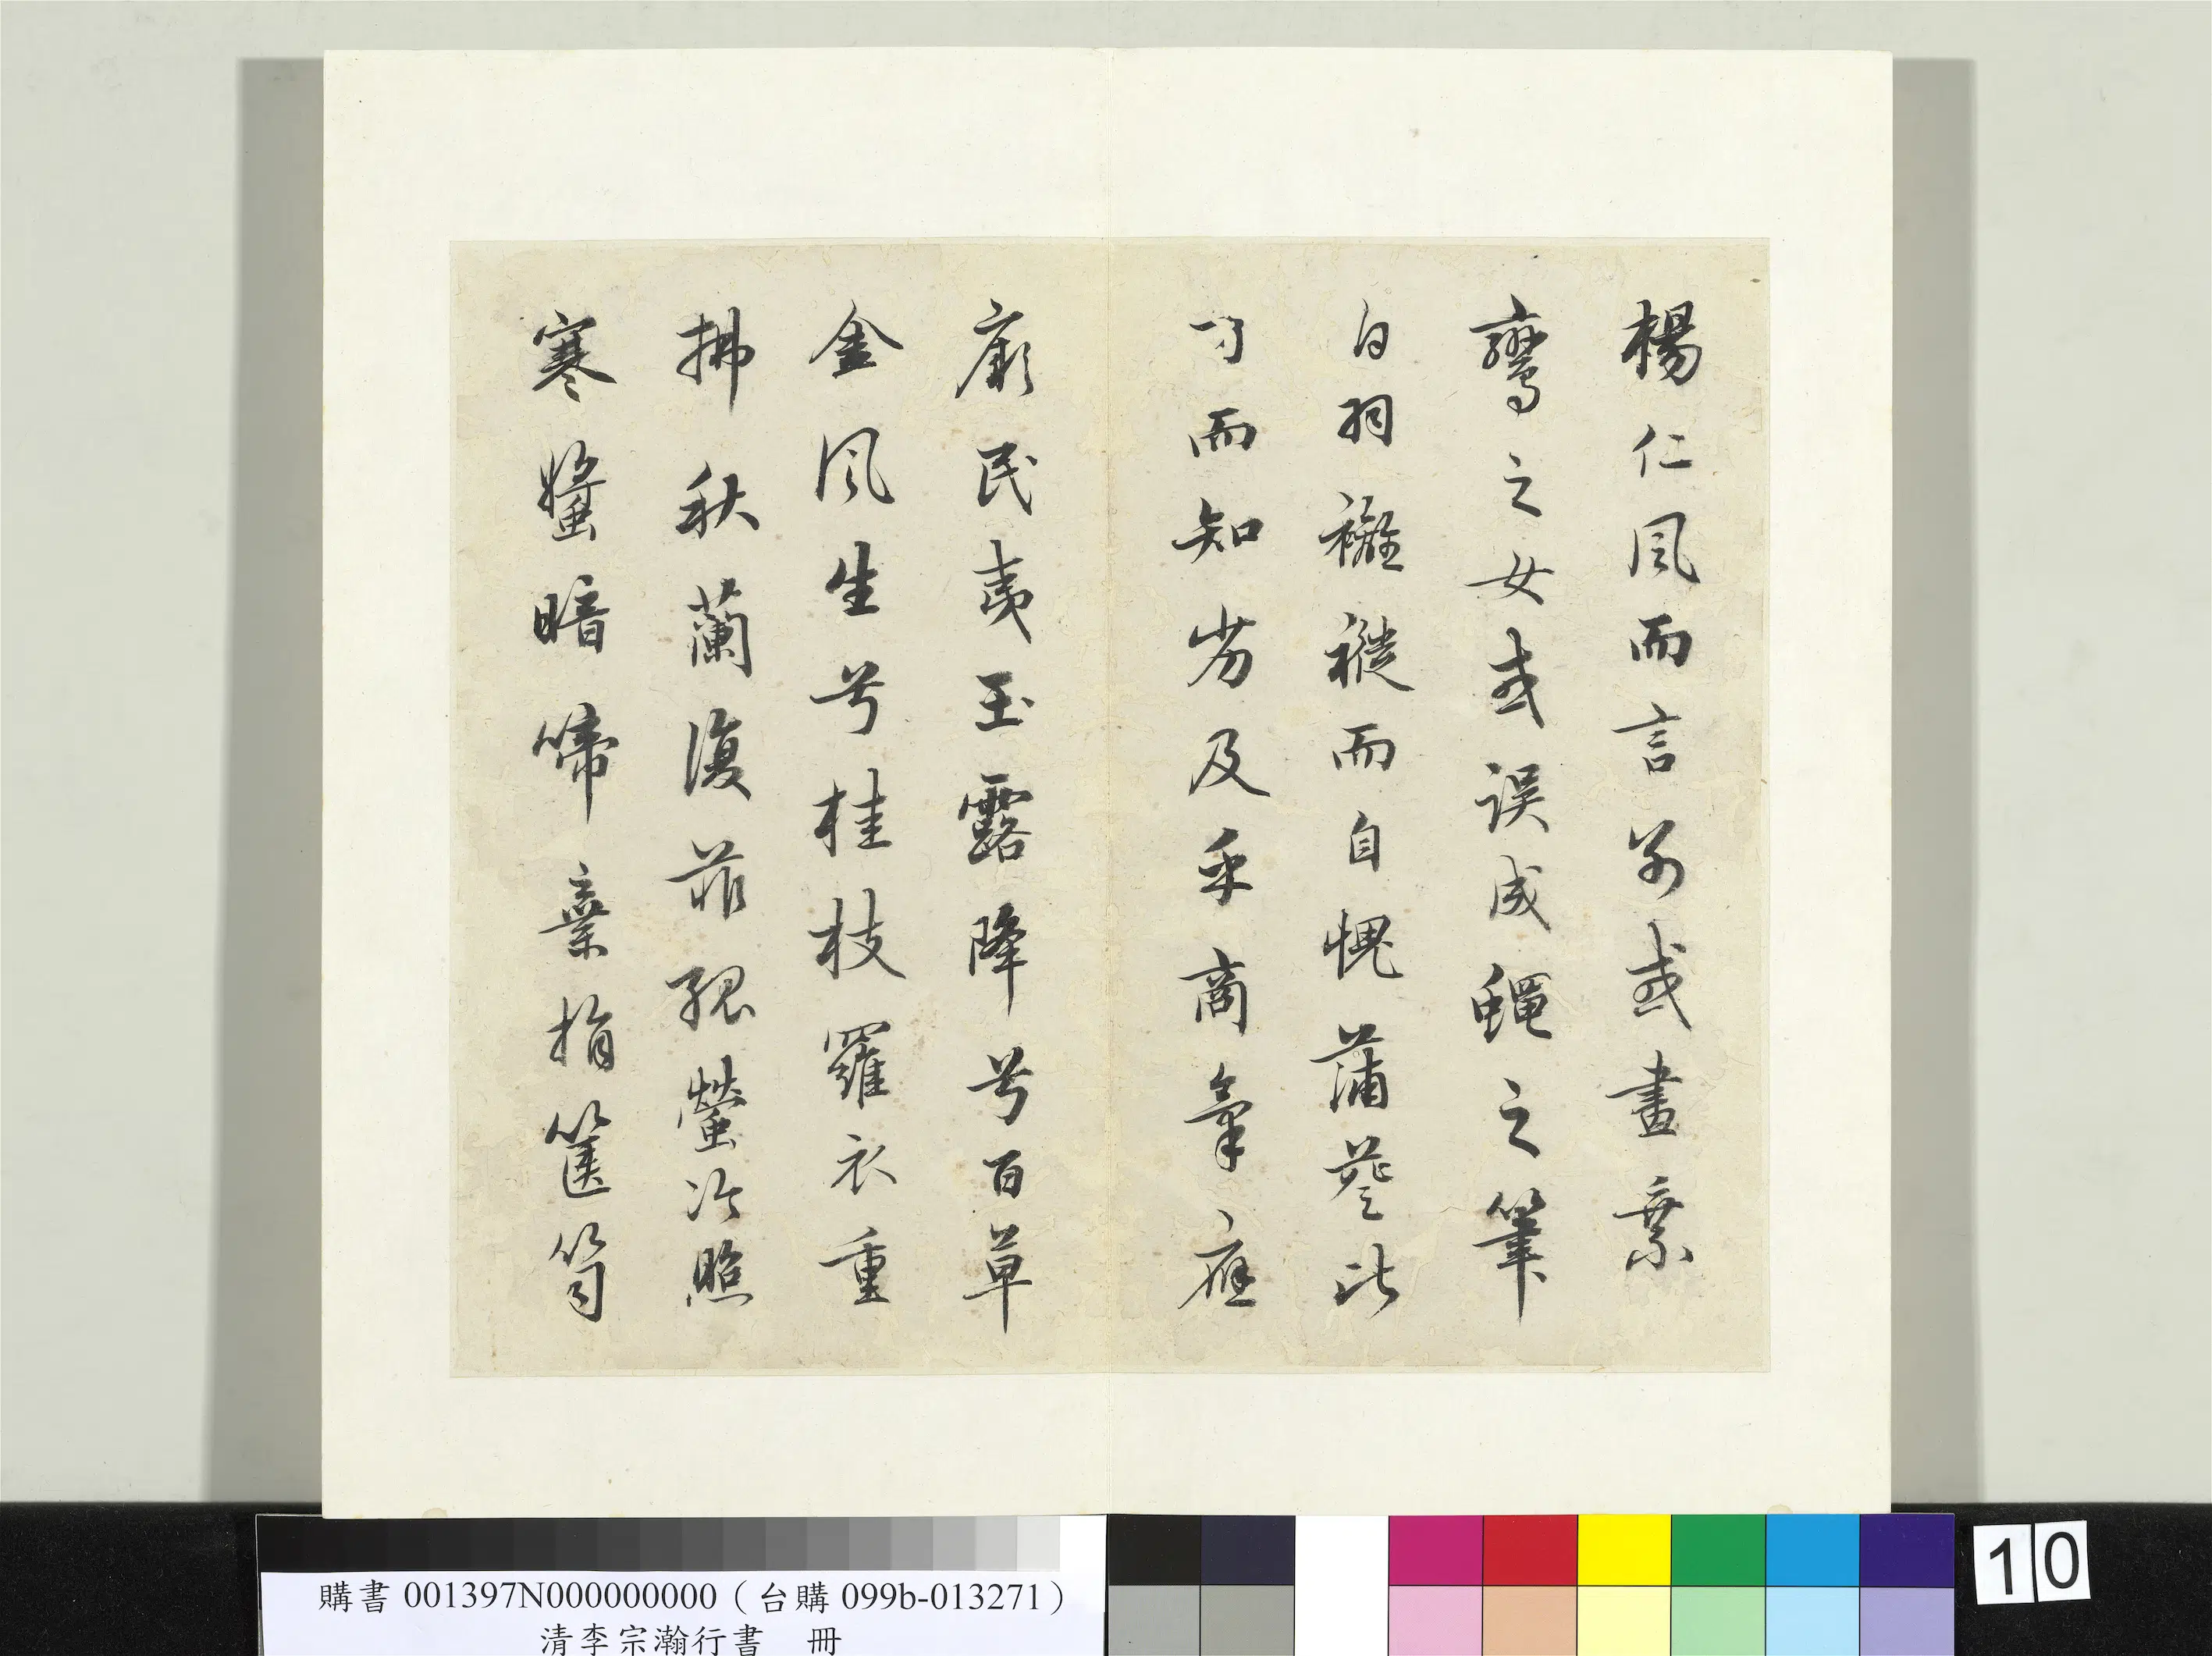 楊仁風而言別或畫乘
鸞之女或誤成蠅之筆
白羽褷而自愧蒲葵比
方而知劣及乎商氣應
厥民夷玉露降兮百草
金風生兮桂枝羅衣重
拂秋蘭復菲孤螢冷照
寒螿暗啼棄捐篋笥
購書 001397N000000000（台購 099b-013271）
清李宗瀚行書　冊
10